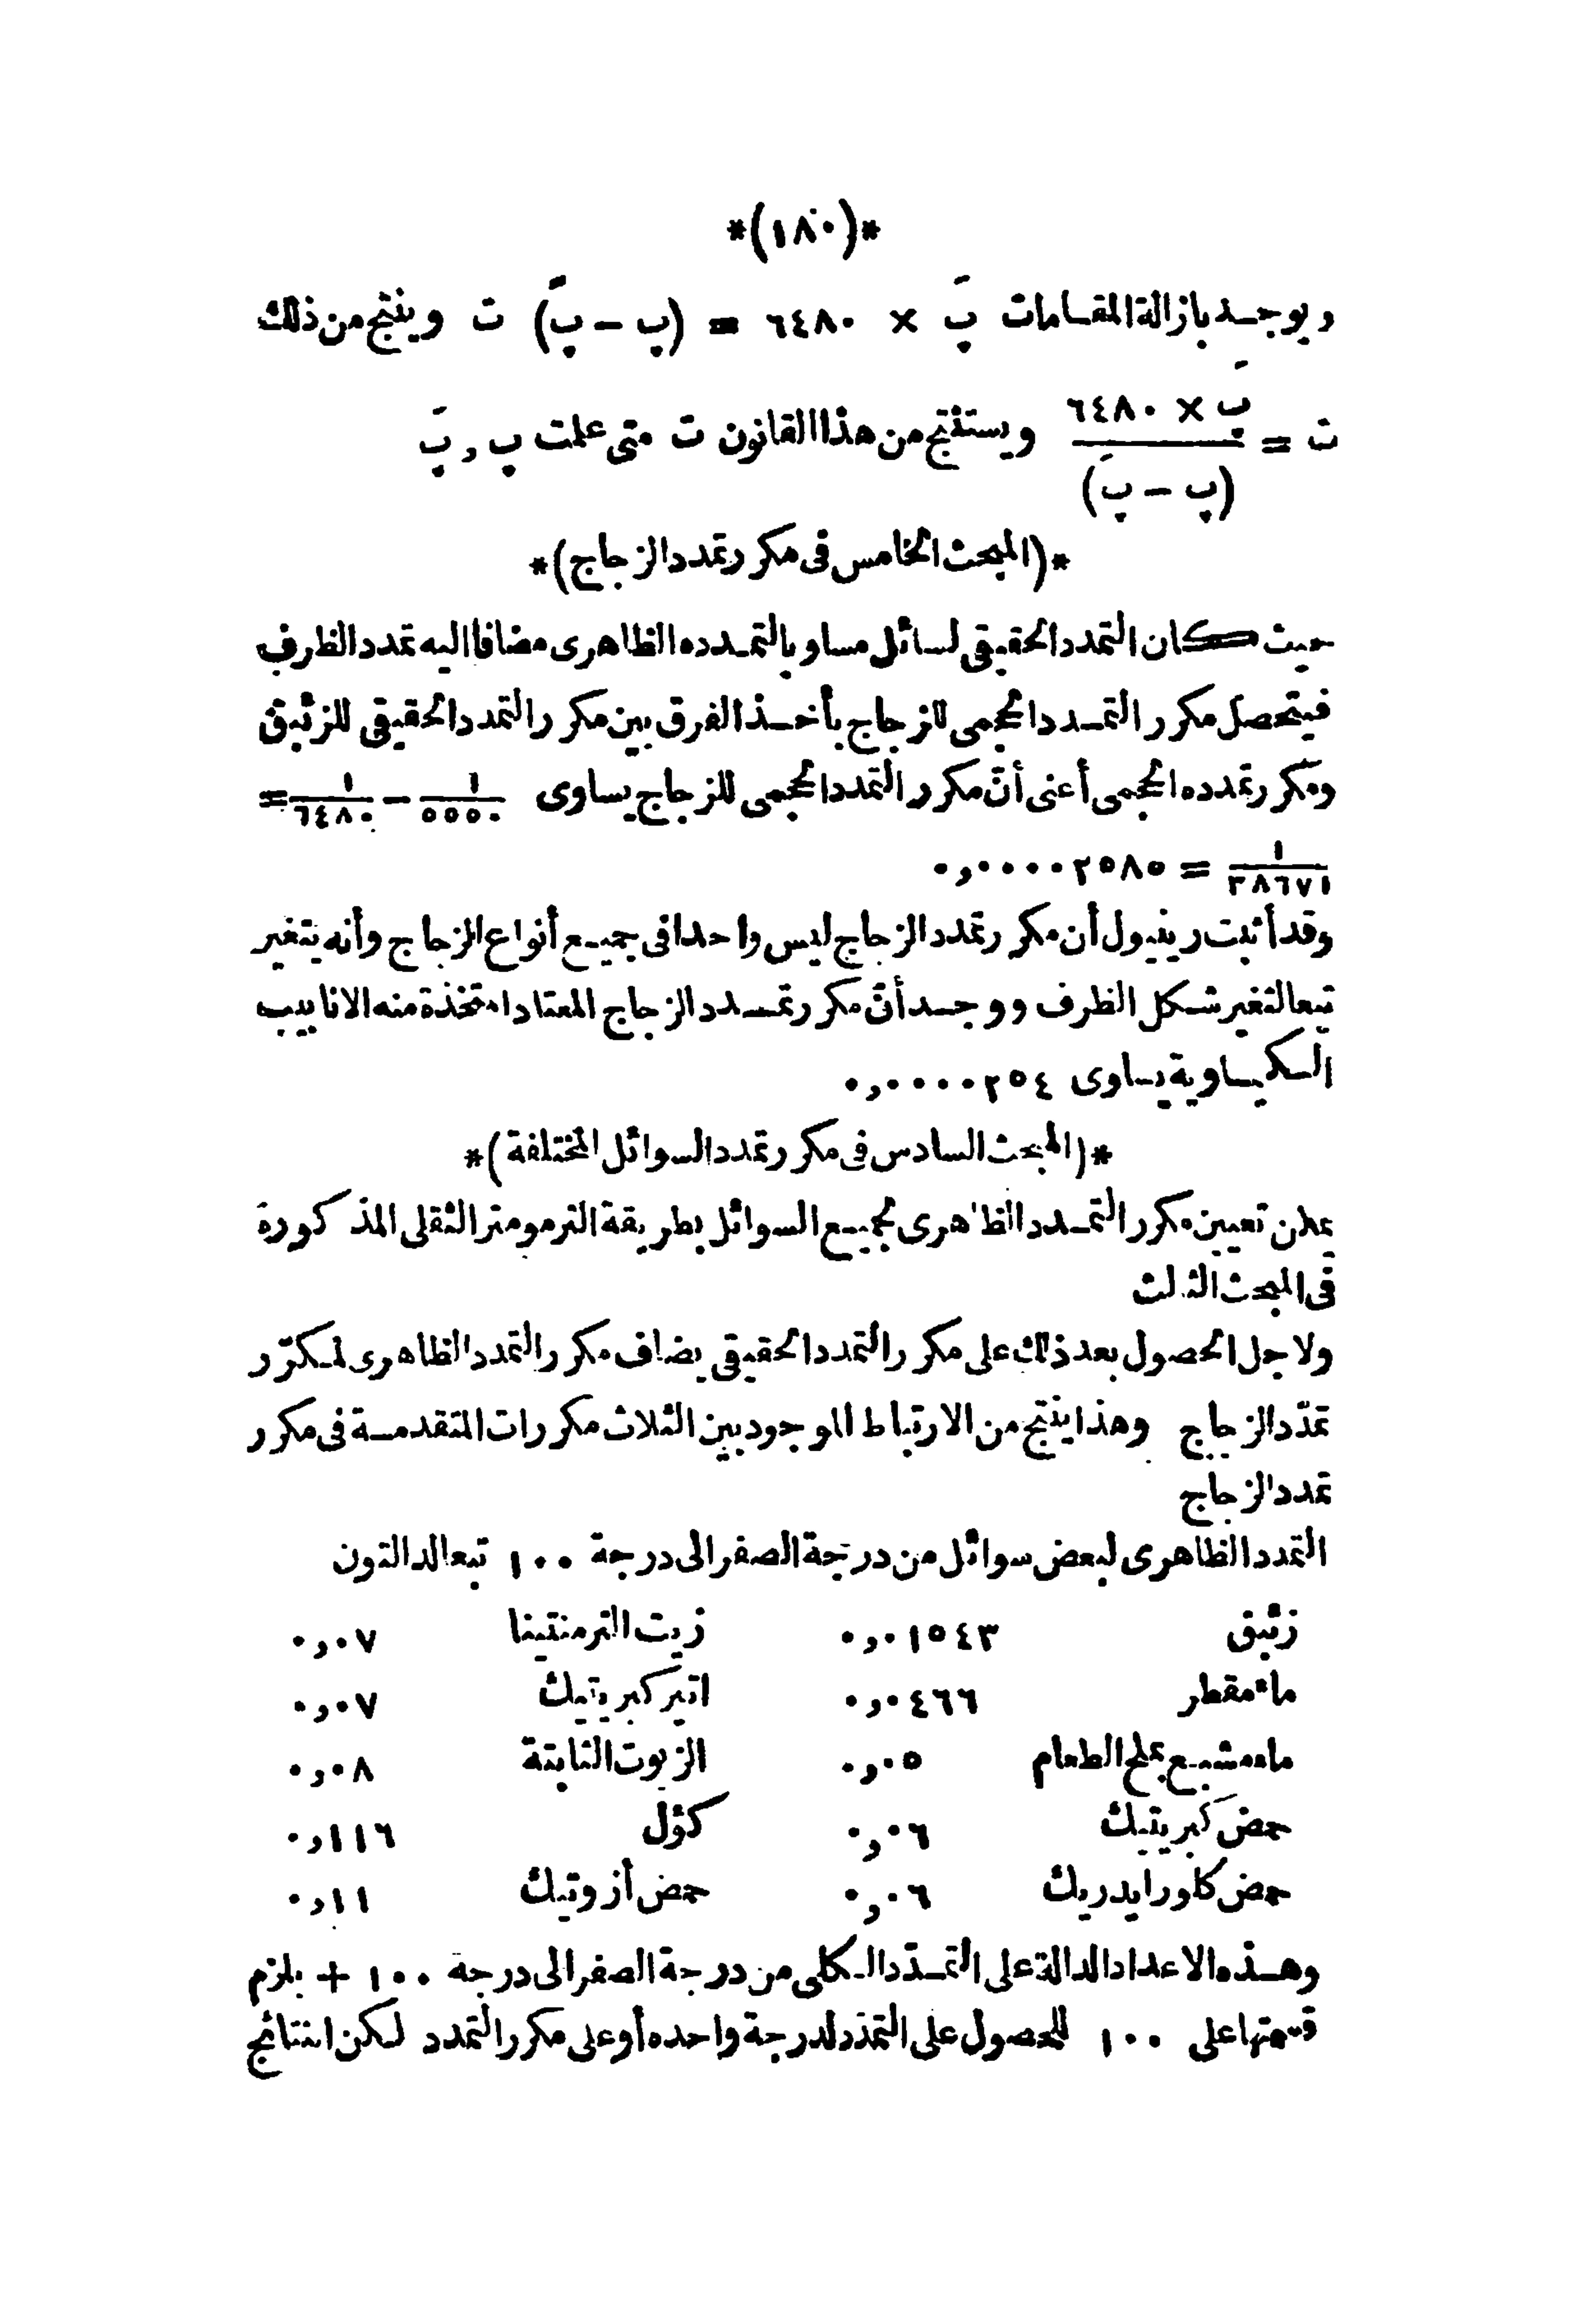 *(١٨٠)*
ويوجد بازالة المقامات پَ × ٦٤٨٠ = (پ − پَ) ت وينتج من ذلك
ت = پَ × ٦٤٨٠ / (پ − پَ) ويستنتج من هذا القانون ت متى علت پ و پَ
*(المبحث الخامس فى مكرر تمدد الزجاج)*
حيث كان التمدد الحقيقى لسائل مساويا لتمدده الظاهرى مضافا اليه تمدد الظرف
فيتحصل مكرر التمدد الحجمى للزجاج بأخذ الفرق بين مكرر التمدد الحقيقى للزئبق
ومكرر تمدده الحجمى أعنى أنّ مكرر التمدد الحجمى للزجاج يساوى ١/٥٥٥٠ − ١/٦٤٨٠ =
١/٣٨٦٧١ = ٠,٠٠٠٠٢٥٨٥
وقد أثبت رينيول أن مكرر تمدد الزجاج ليس واحدا فى جميع أنواع الزجاج وأنه يتغير
تبعا لتغير شكل الظرف ووجد أنّ مكرر تمدد الزجاج المعتاد المتخذة منه الانابيب
الكيماوية يساوى ٠,٠٠٠٠٢٥٤
*(المبحث السادس فى مكرر تمدد السوائل المختلفة)*
يمكن تعيين مكرر التمدد الظاهرى لجميع السوائل بطريقة الترمومتر الثقلى المذكورة
فى المبحث الثالث
ولاجل الحصول بعد ذلك على مكرر التمدد الحقيقى يضاف مكرر التمدد الظاهرى لمكرّر
تمدّد الزجاج وهذا ينتج من الارتباط الموجود بين الثلاث مكررات المتقدمة فى مكرر
تمدد الزجاج
التمدد الظاهرى لبعض سوائل من درجة الصفر الى درجة ١٠٠ تبعا لدالتون
زئبق ٠,٠١٥٤٣ زيت الترمنتينا ٠,٠٧
ماء مقطر ٠,٠٤٦٦ اتير كبريتيك ٠,٠٧
ماء مشبع بملح الطعام ٠,٠٥ الزيوت الثابتة ٠,٠٨
حمض كبريتيك ٠,٠٦ كؤل ٠,١١٦
حمض كلورايدريك ٠,٠٦ حمض أزوتيك ٠,١١
وهذه الاعداد الدالة على التمدّد الكلى من درجة الصفر الى درجة ١٠٠ + يلزم
قسمتها على ١٠٠ للحصول على التمدد لدرجة واحده أو على مكرر التمدد لكن النتائج